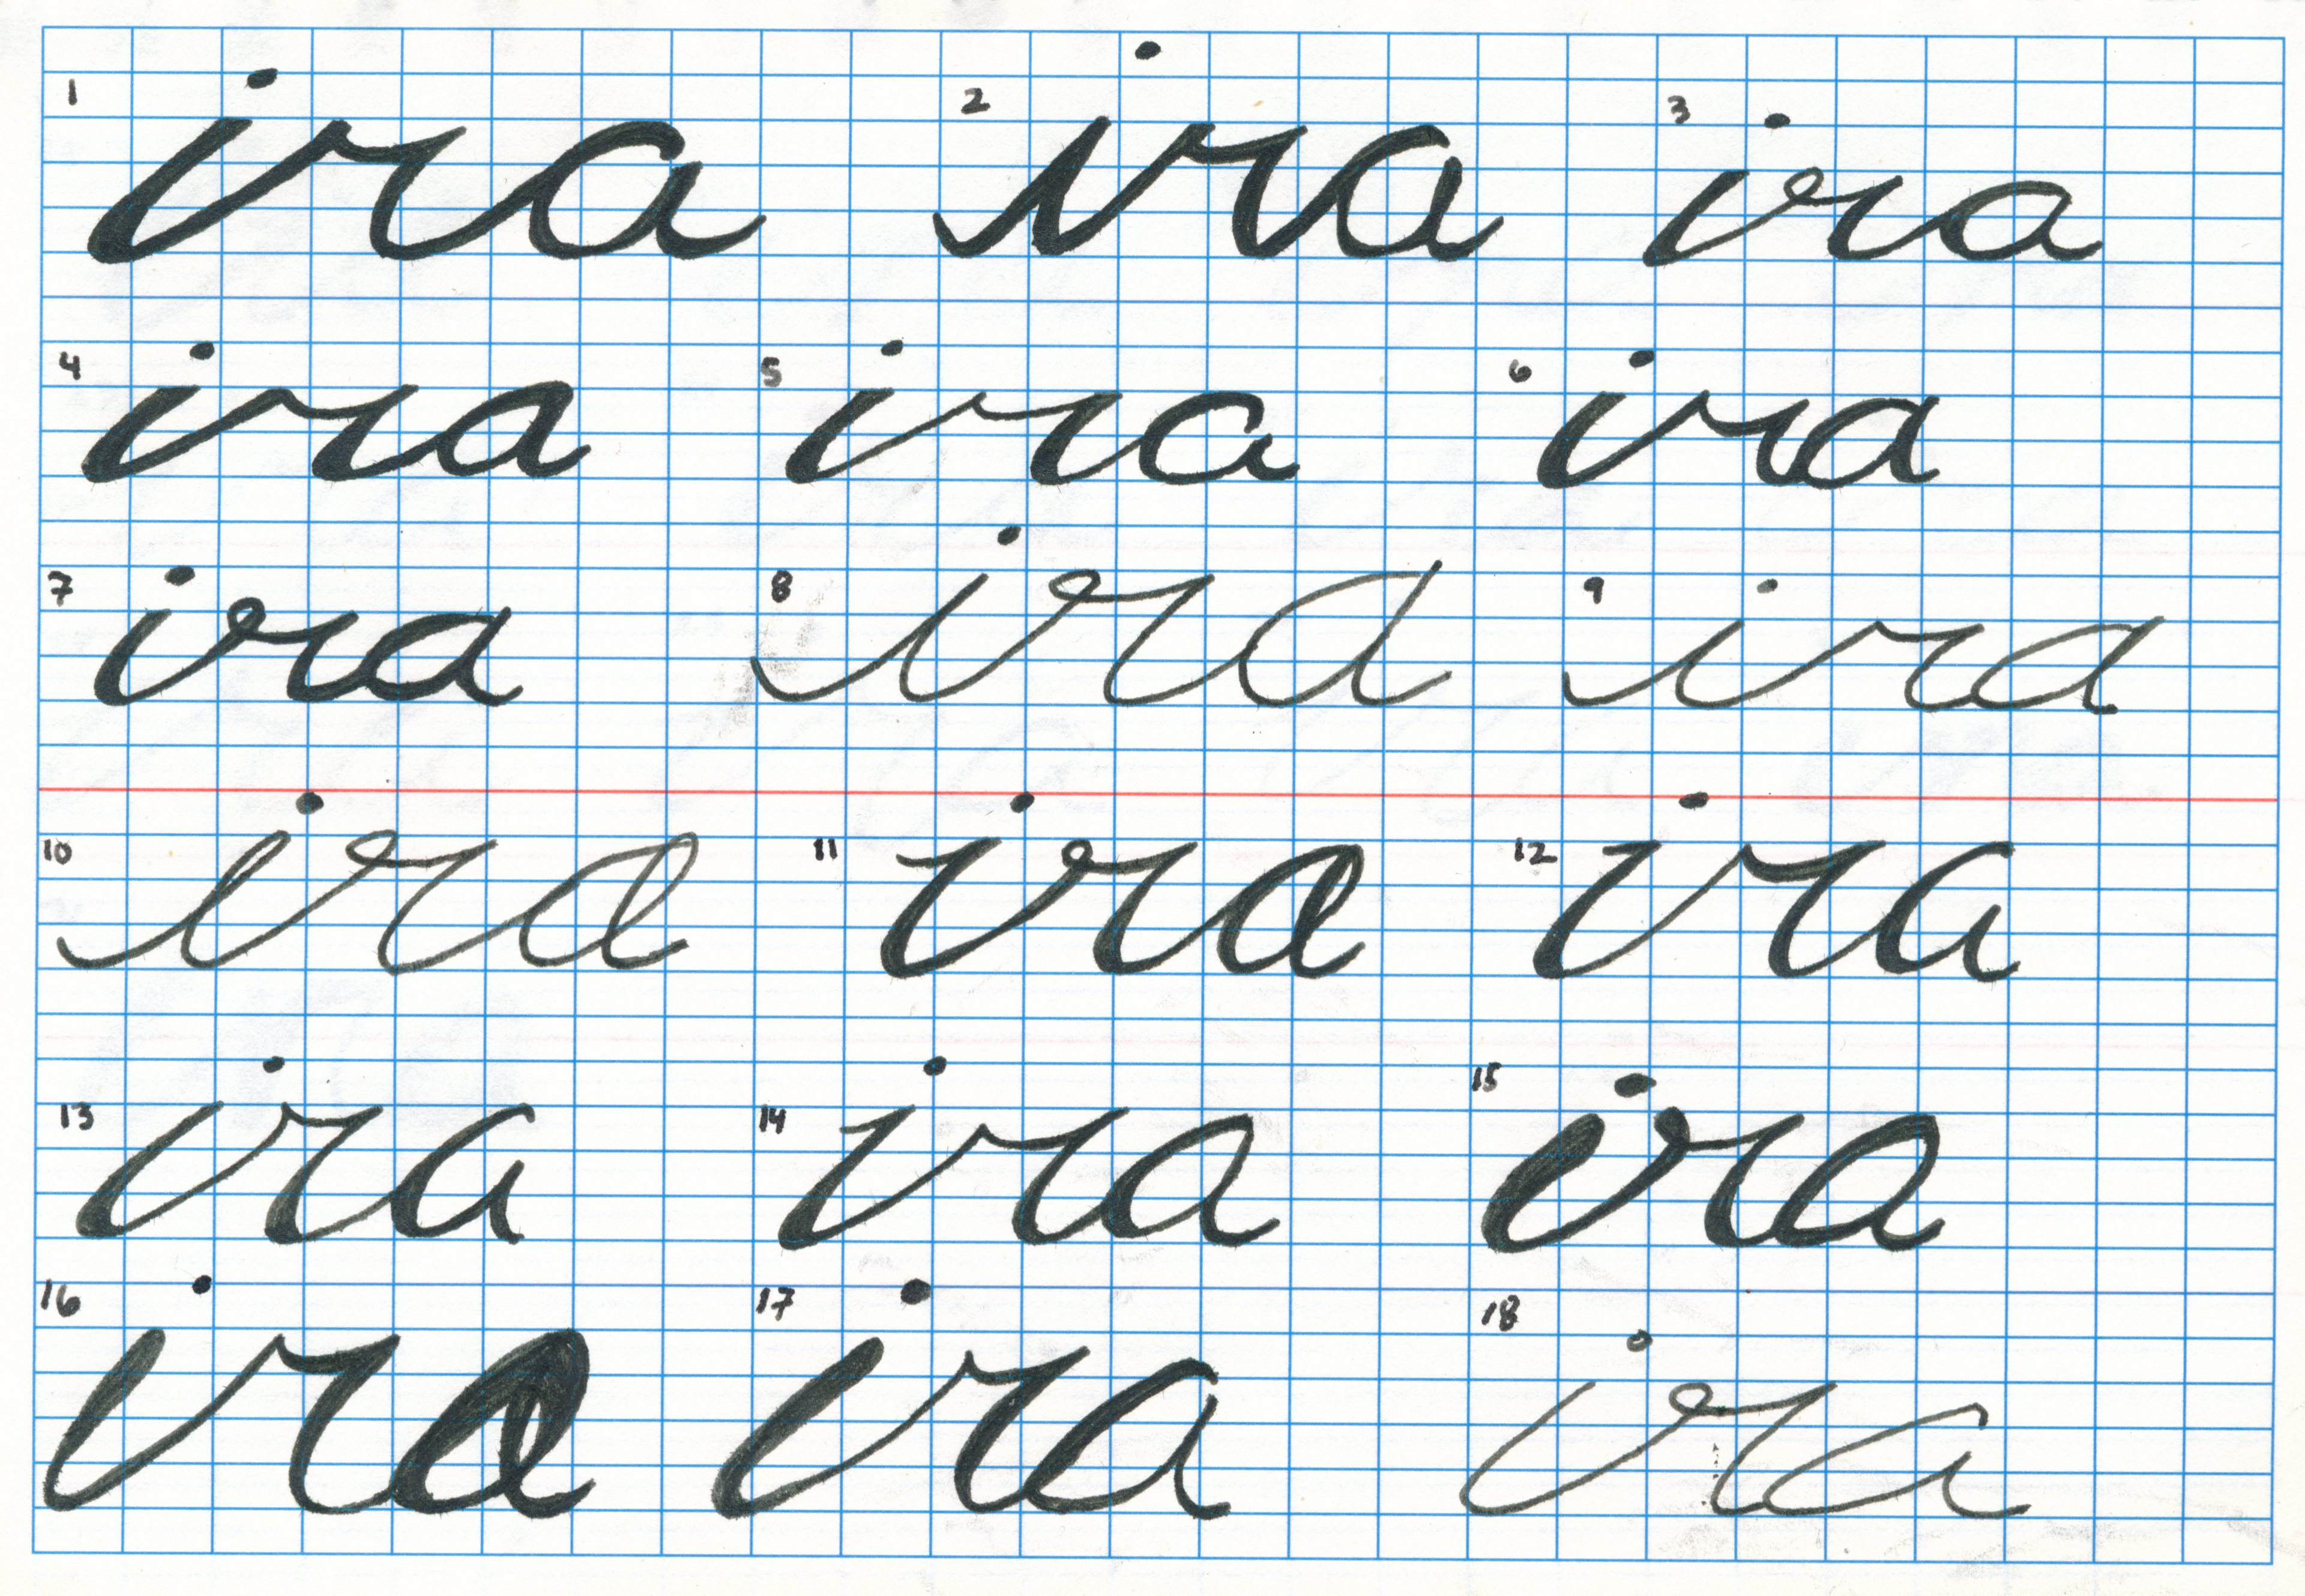 1 ira 2 ira 3 ira
4 ira 5 ira 6 ira
7 ira 8 ira 9 ira
10 ira 11 ira 12 ira
13 ira 14 ira 15 ira
16 ira 17 ira 18 ira